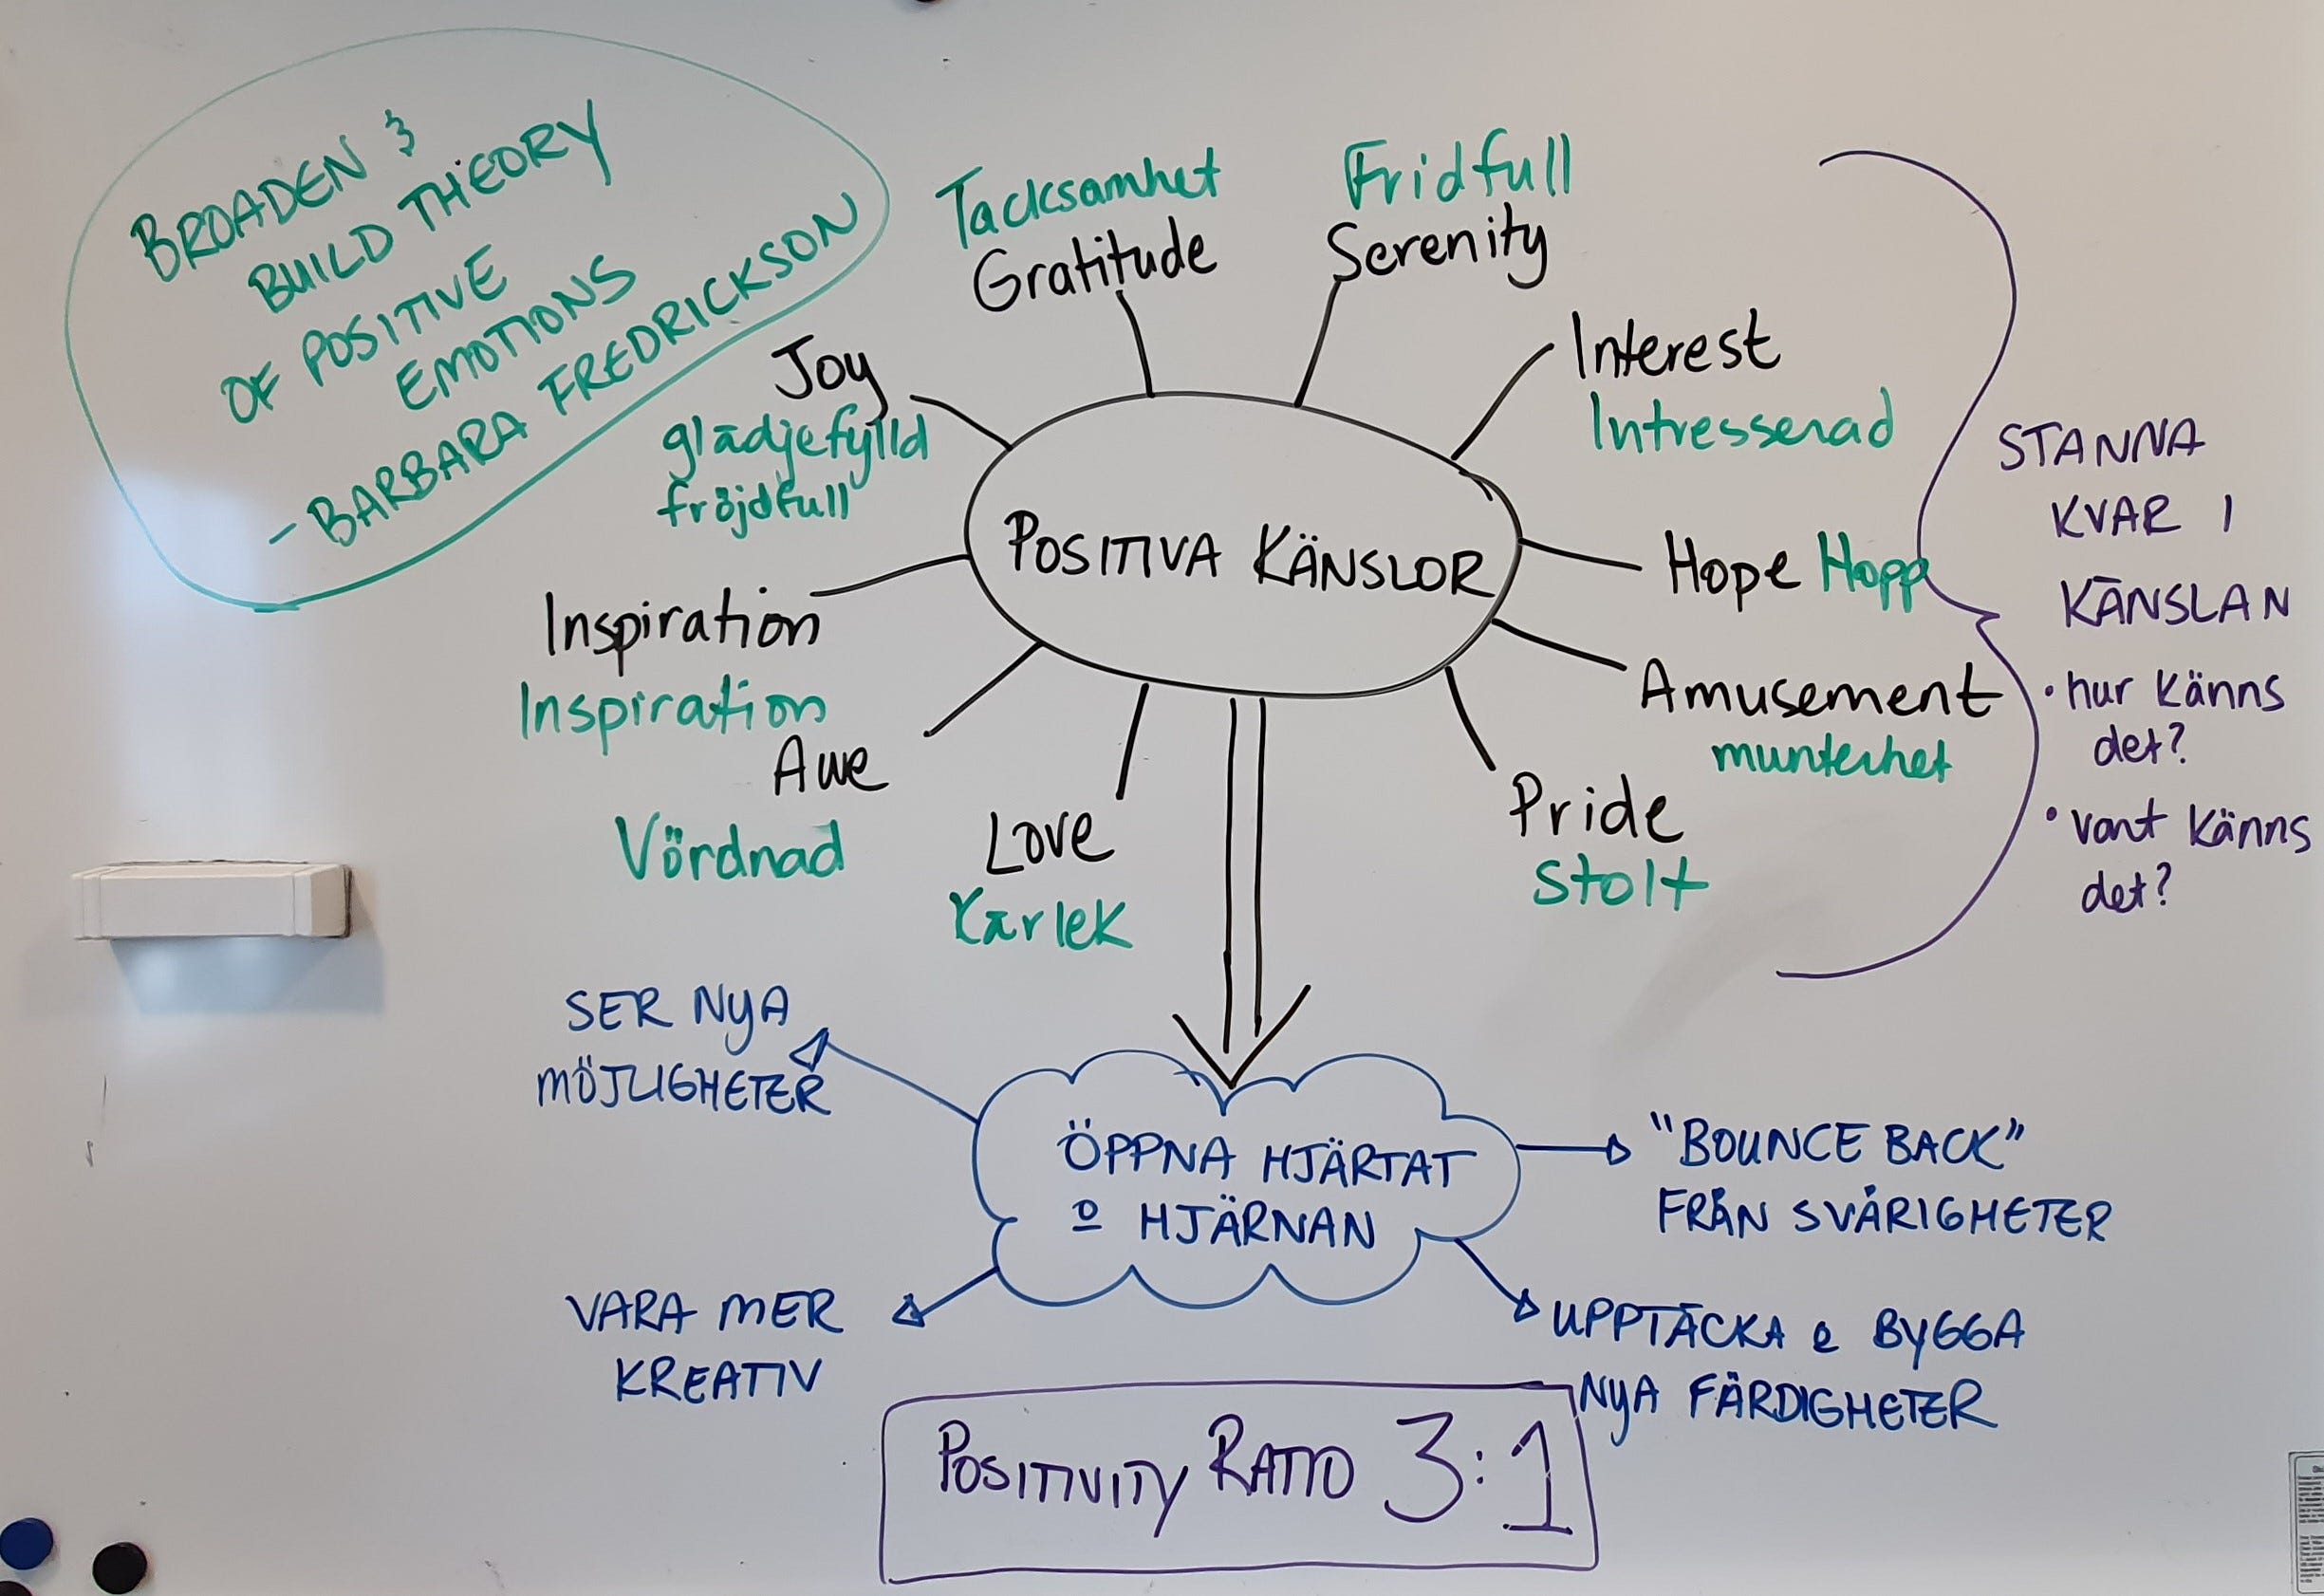 BROADEN &
BUILD THEORY
OF POSITIVE
EMOTIONS
- BARBARA FREDRICKSON
Tacksamhet
Gratitude
Fridfull
Serenity
Joy
glädjefylld
fröjdfull
Interest
Intresserad
POSITIVA KÄNSLOR
Hope Hopp
Inspiration
Inspiration
Amusement
munterhet
Awe
Vördnad
Love
Kärlek
Pride
Stolt
STANNA
KVAR I
KÄNSLAN
• hur känns
det?
• vart känns
det?
SER NYA
MÖJLIGHETER
ÖPPNA HJÄRTAT
o HJÄRNAN
"BOUNCE BACK"
FRÅN SVÅRIGHETER
VARA MER
KREATIV
UPPTÄCKA & BYGGA
NYA FÄRDIGHETER
POSITIVITY RATIO 3:1